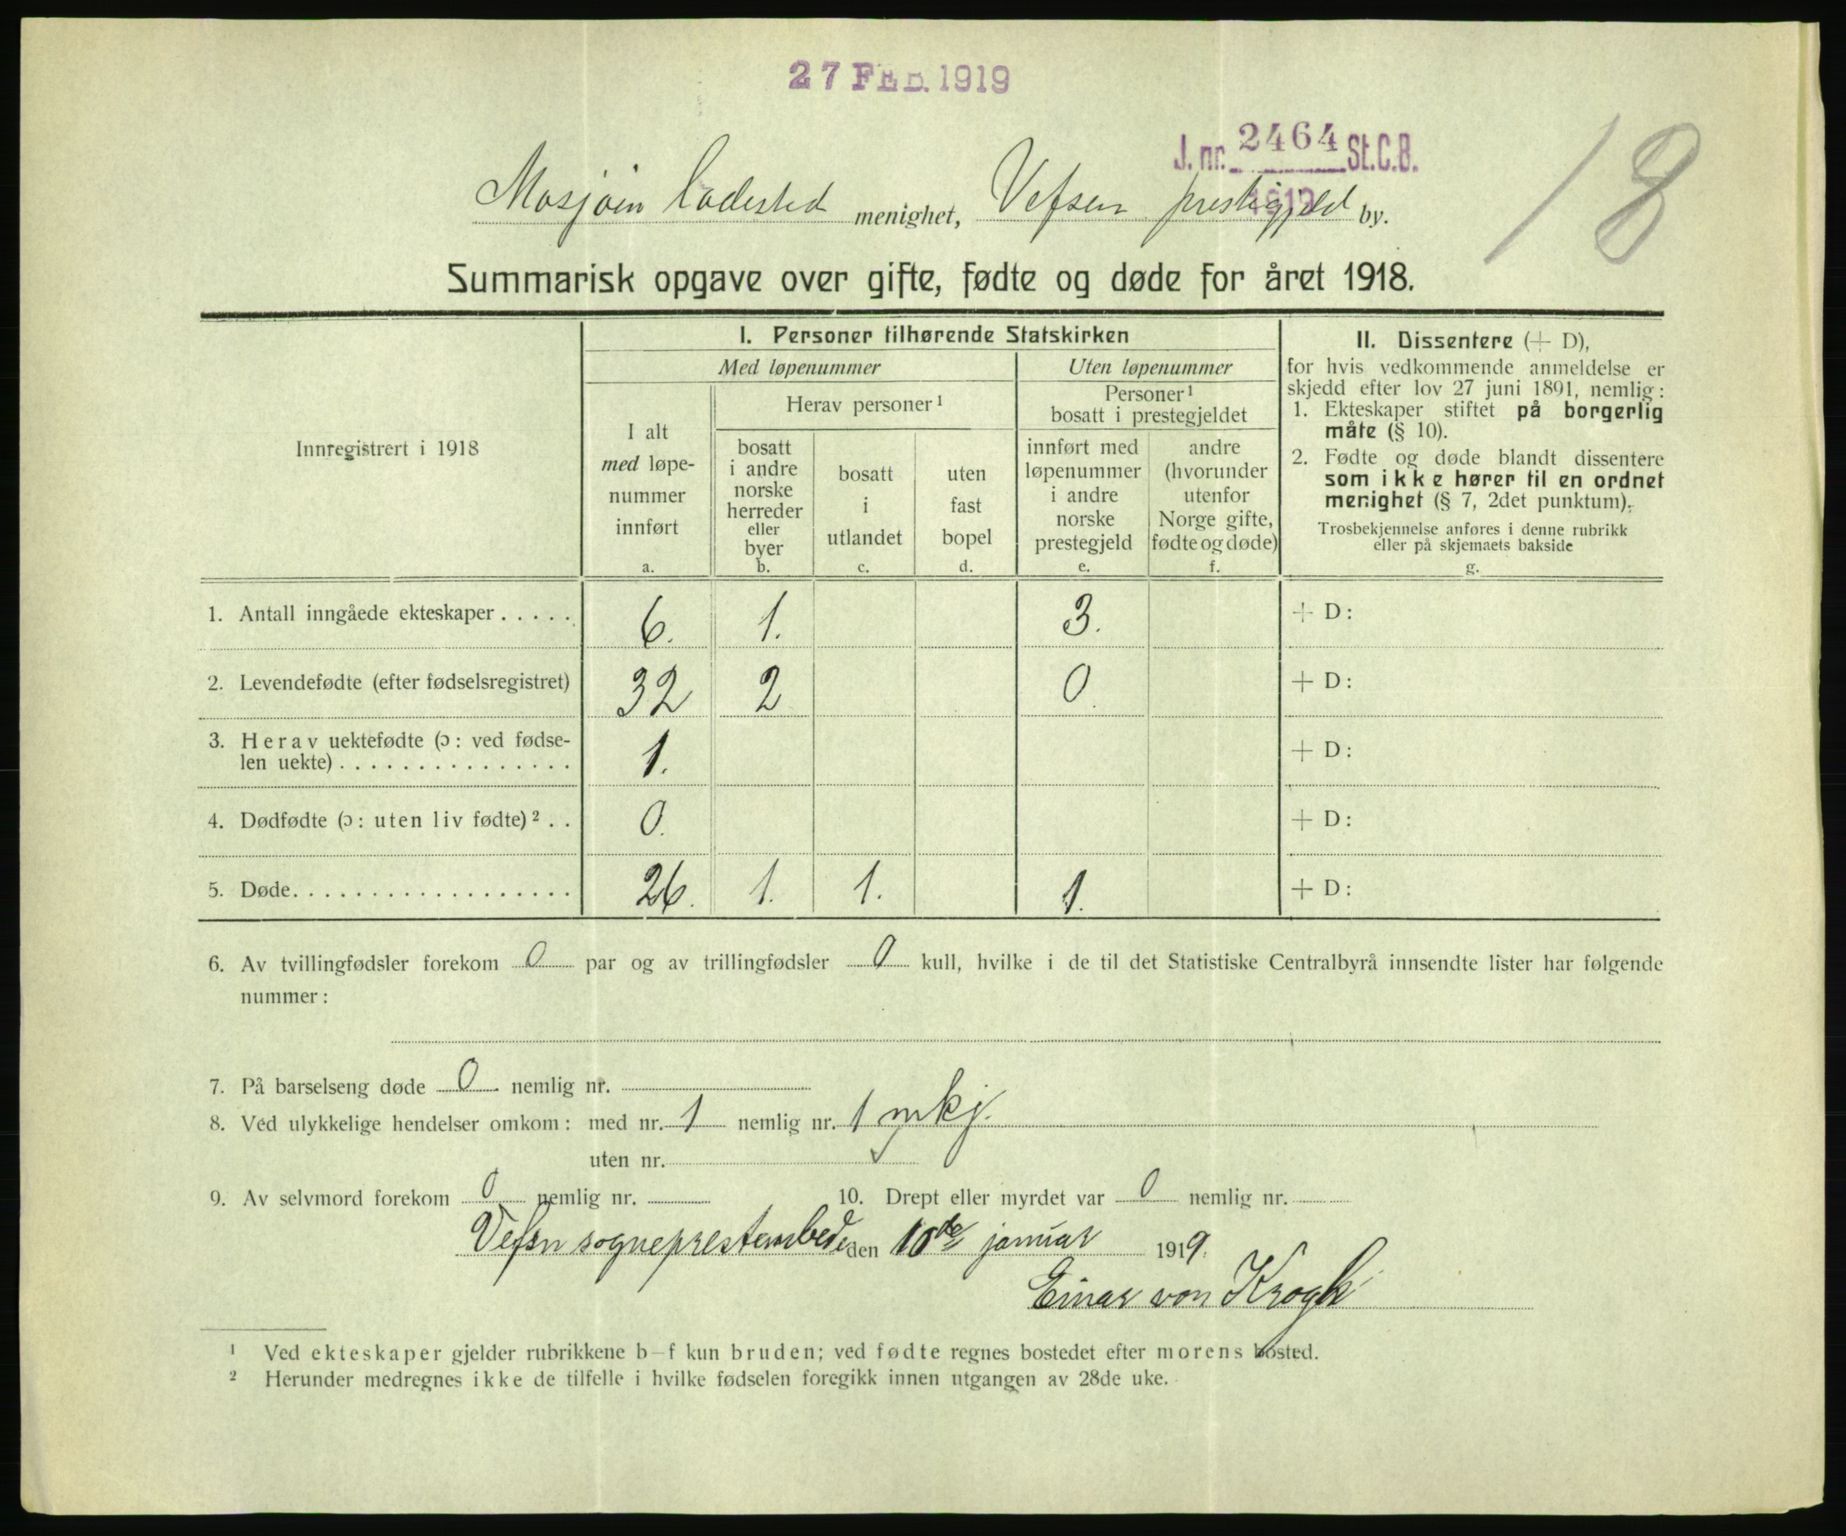 27 FEB. 1919
J. nr. 2464 St.C.B.
1919
18
Mosjøen ladested menighet, Vefsen prestegjeld by.
Summarisk opgave over gifte, fødte og døde for året 1918.
Innregistrert i 1918
I. Personer tilhørende Statskirken
Med løpenummer
Uten løpenummer
I alt
med løpe-
nummer
innført
a.
Herav personer¹
bosatt
i andre
norske
herreder
eller
byer
b.
bosatt
i
utlandet
c.
uten
fast
bopel
d.
Personer¹
bosatt i prestegjeldet
innført med
løpenummer
i andre
norske
prestegjeld
e.
andre
(hvorunder
utenfor
Norge gifte,
fødte og døde)
f.
II. Dissentere (+ D),
for hvis vedkommende anmeldelse er
skjedd efter lov 27 juni 1891, nemlig:
1. Ekteskaper stiftet på borgerlig
måte (§ 10).
2. Fødte og døde blandt dissentere
som ikke hører til en ordnet
menighet (§ 7, 2det punktum).
Trosbekjennelse anføres i denne rubrikk
eller på skjemaets bakside
g.
1. Antall inngåede ekteskaper . . . . . 6. 1. 3. + D:
2. Levendefødte (efter fødselsregistret) 32 2 0 + D:
3. Herav uektefødte (ɔ: ved fødse-
len uekte) . . . . . . . . . . . . . . . 1. + D:
4. Dødfødte (ɔ: uten liv fødte)² . . 0. + D:
5. Døde. . . . . . . . . . . . . . . . . . 26. 1. 1. 1. + D:
6. Av tvillingfødsler forekom 0 par og av trillingfødsler 0 kull, hvilke i de til det Statistiske Centralbyrå innsendte lister har følgende
nummer:
7. På barselseng døde 0 nemlig nr.
8. Ved ulykkelige hendelser omkom: med nr. 1 nemlig nr. 1 mkj.
uten nr.
9. Av selvmord forekom 0 nemlig nr. 10. Drept eller myrdet var 0 nemlig nr.
Vefsn sogneprestembede den 10de januar 1919.
Einar von Krogh
¹ Ved ekteskaper gjelder rubrikkene b—f kun bruden; ved fødte regnes bostedet efter morens bosted.
² Herunder medregnes ikke de tilfelle i hvilke fødselen foregikk innen utgangen av 28de uke.